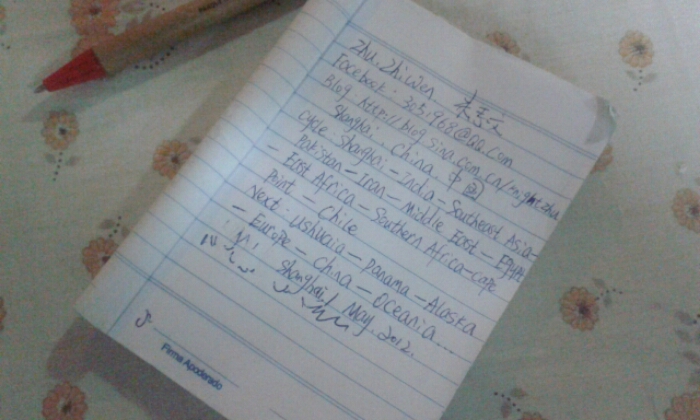 Zhu Zhiwen 朱志文
Facebook: 3051968@QQ.com
Blog http://blog.sina.com.cn/nightzhu
Shanghai. China. 中国
Cycle Shanghai - India - Southeast Asia -
Pakistan - Iran - Middle East - Egypt
- East Africa - Southern Africa - Cape
Point - Chile
Next: Ushuaia - Panama - Alaska
- Europe - China - Oceania ...
Shanghai
May. 2012.
Firma Apoderado